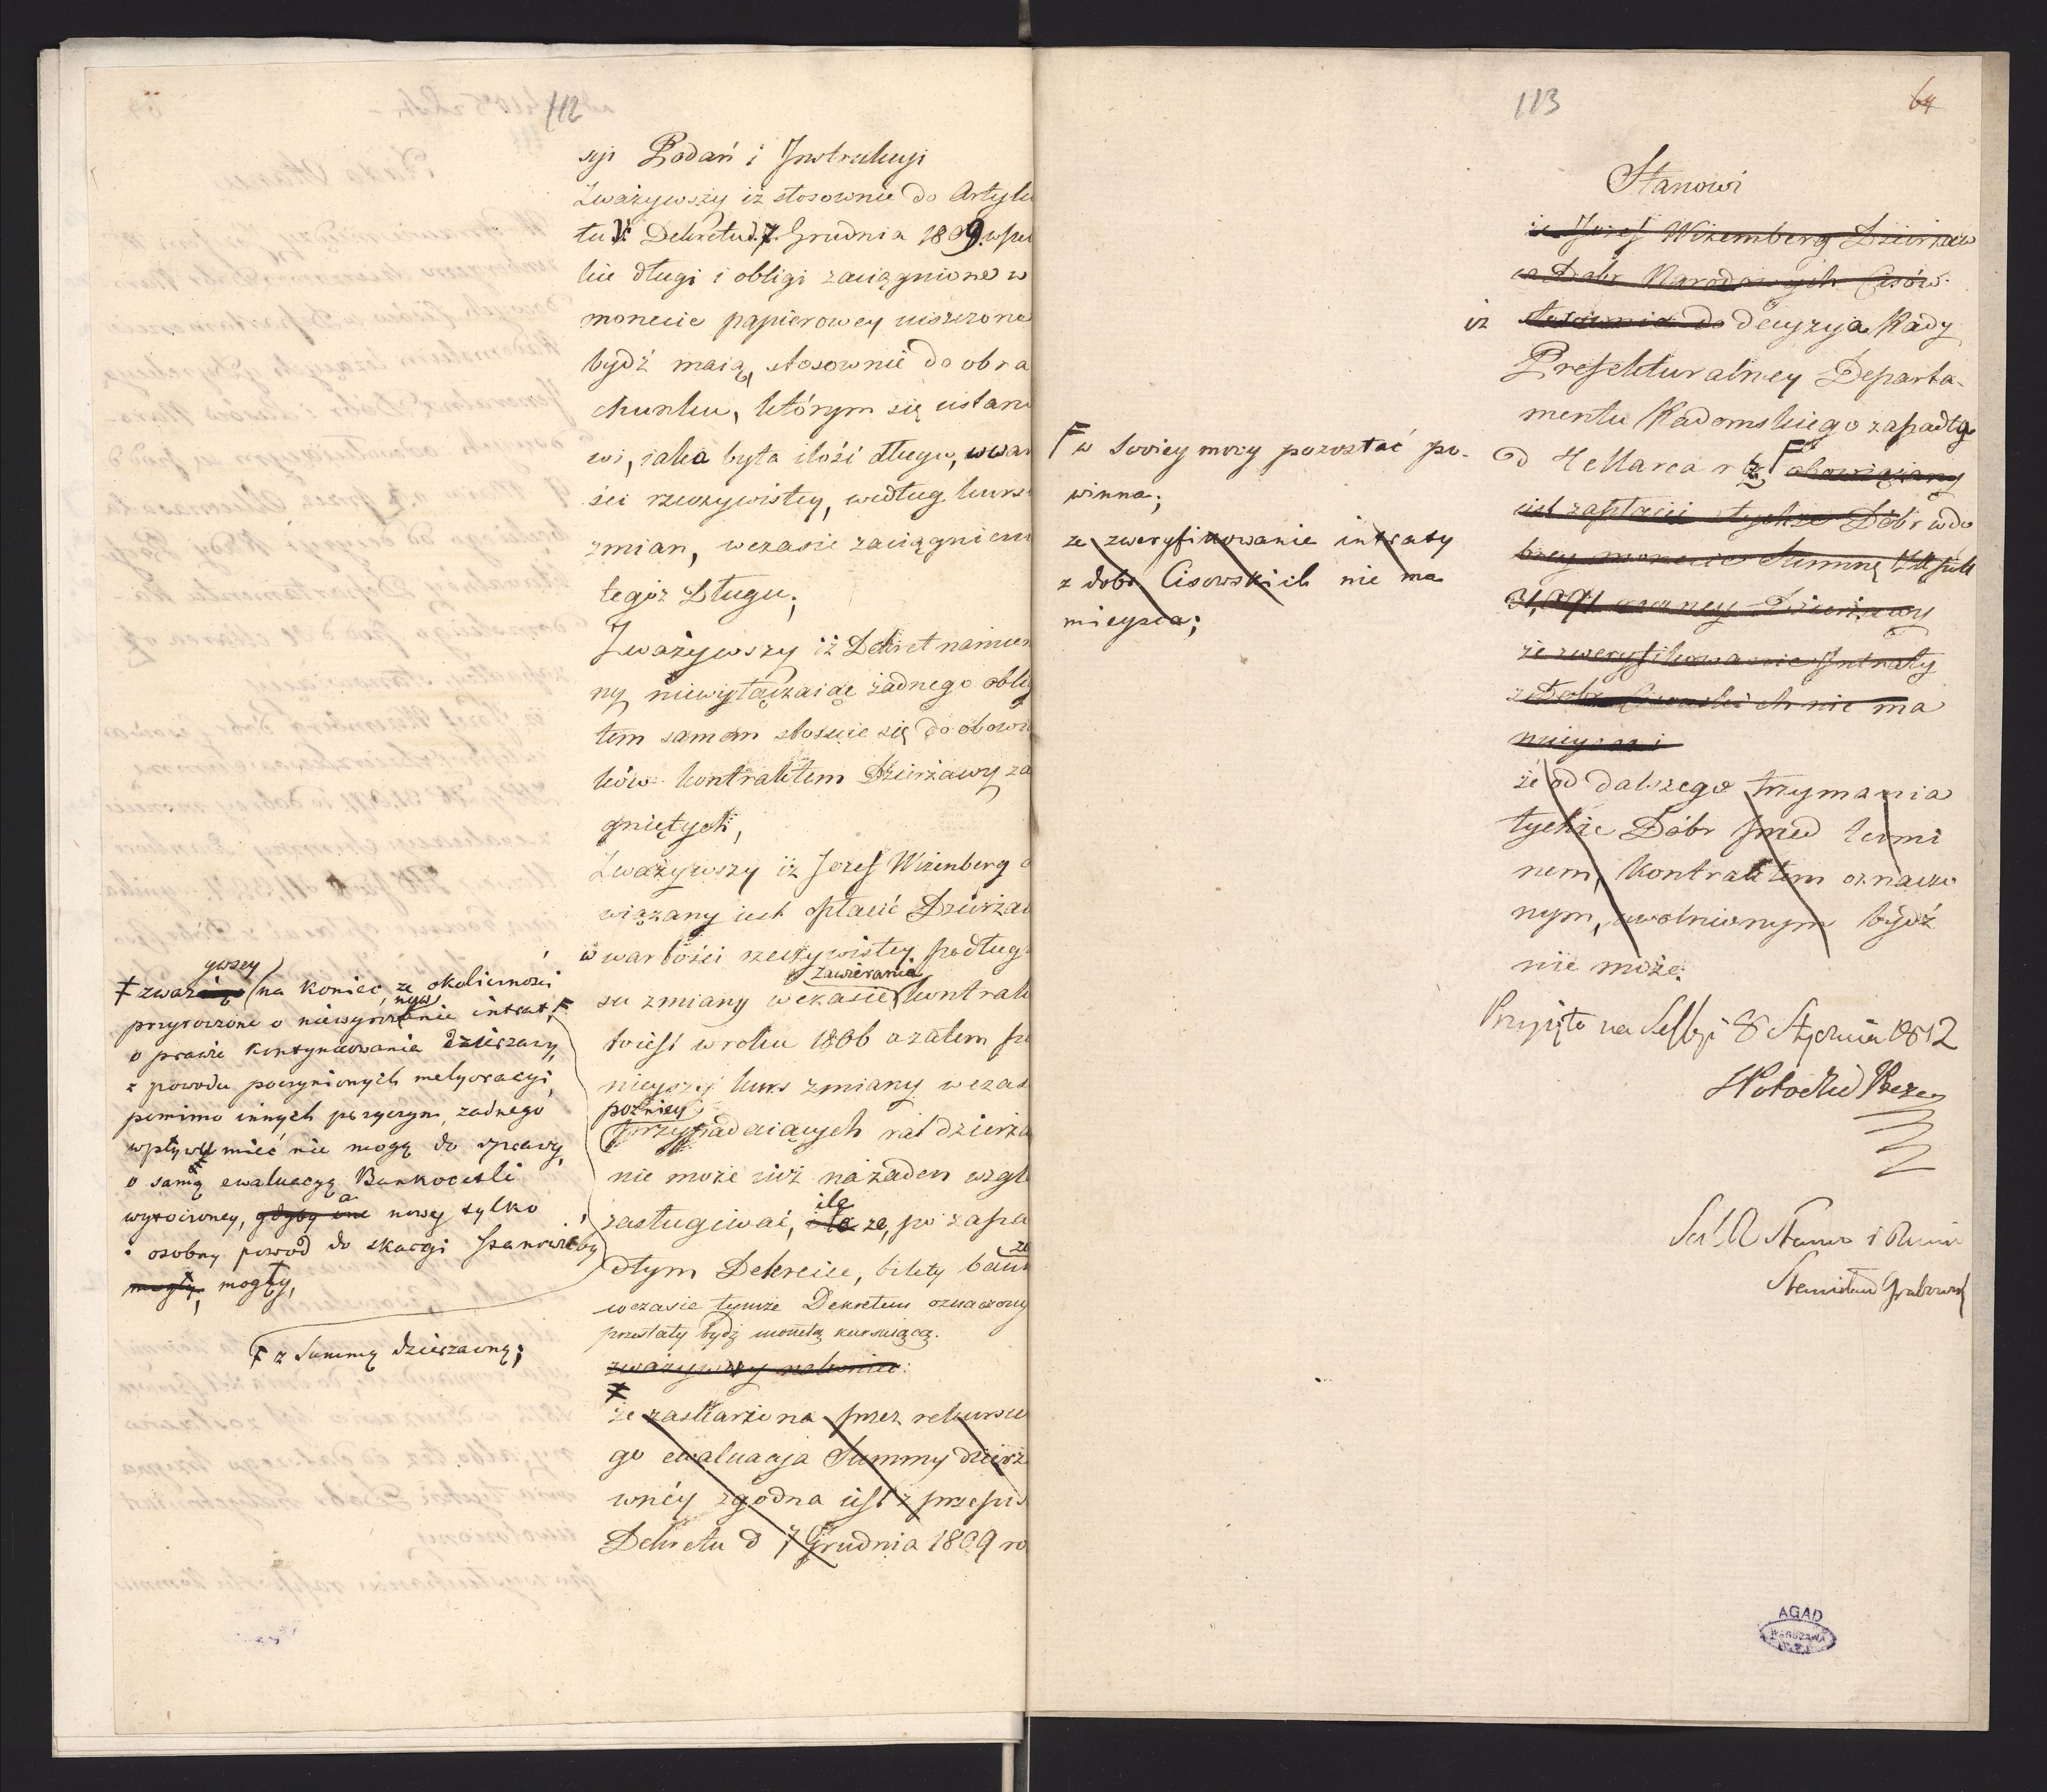 112
syi Podań i Instrukcyi
Zważywszy iż stosownie do Artyku
łu V. Dekretu d. 7. Grudnia 1809 wszel
kie długi i obligi zaciągnione w
monecie papierowey uiszczone
bydź maią, stosownie do obra
chunku, którym się ustano
wi, iaka była ilość długu, w war
ści rzeczywistey, według kursu
zmian, w czasie zaciągnienia
tegoż Długu;
Zważywszy iż Dekret namien
ny niewyłączaiąc żadnego oblig
tem samem stosuie się do obowią
ków kontraktem Dzierżawy za
gniętych,
Zważywszy iż Jozef Wizenberg o
wiązany iest opłacić Dzierżaw
w wartości rzeczywistey podług
zawierania
su zmiany w czasie kontrak
to iest w roku 1806 a zatem
nieyszy kurs zmiany w czas
poźniey
przypadaiących rat dzierża
nie może iuż na żaden wzgl
ile
zasługiwać, że, po zapa
dłym Dekrecie, bilety ban
w czasie tymże Dekretem oznaczony
przestały bydź monetą kursuiącą.
zważywszy na koniec:
że zaskarżona przez rekursu
go ewaluacja Summy dzierż
wnéy zgodna iest z przepis
Dekretu d 7 Grudnia 1809 ro
ywszy
zważ na koniec, ze okoliczności
przytoczone o niewyrównanie intrat,
o prawie kontynuowania dzierzawy,
z powodu poczynionych melyoracyi,
pomimo innych przyczyn, zadnego
wpływu mieć nie mogą do sprawy,
o samą ewaluacyą Bankocetli
wytoczoney, gdyby one nowy tylko
i osobny powod do skargi stanowićby
mogły, mogły,
z Summą dzierzawną;
113
64
Stanowi
iż Jozef Wizemberg Dzierżaw
ca Dobr Narodowych Cisów
iż stosownie do decyzya Rady
Prefekturalney Departa-
mentu Radomskiego zapadła
d 4 Marca r b obowiązany
iest zapłacić z tychże Dobr w do
brey monecie Summę Złł pols
31,071 roczney Dzierżawy
że zweryfikowanie Intraty
z Dobr Cisowskich nie ma
mieysca i
że od dalszego trzymania
tychże Dóbr przed termi
nem, Kontraktem oznaczo
nym, uwolnionym bydź
nie może;
w swoiey mocy pozostać po-
winna;
ze zweryfikowanie intraty
z dobr Cisowskich nie ma
mieysca;
Przyięto na Sessyi 8 Stycznia 1812
Stanisław Grabowski
AGAD
WARSZAWA